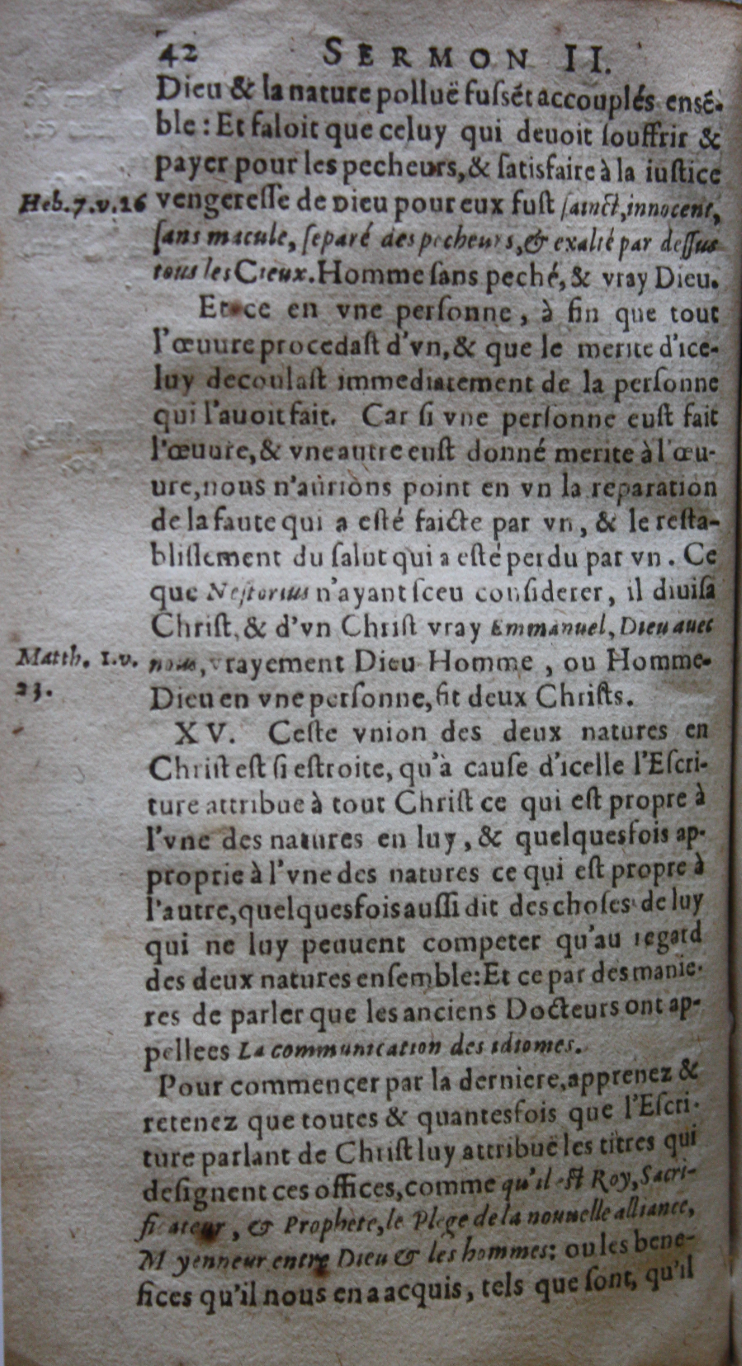 42 SERMON II.
Dieu & la nature polluë fussẽt accouplés ensẽ-
ble : Et faloit que celuy qui deuoit souffrir &
payer pour les pecheurs, & satisfaire à la iustice
Heb. 7. v. 26 vengeresse de Dieu pour eux fust sainct, innocent,
sans macule, separé des pecheurs, & exalté par dessus
tous les Cieux. Homme sans peché, & vray Dieu.
Et ce en vne personne, à fin que tout
l'œuure procedast d'vn, & que le merite d'ice-
luy decoulast immediatement de la personne
qui l'auoit fait. Car si vne personne eust fait
l'œuure, & vne autre eust donné merite à l'œu-
ure, nous n'aurions point en vn la reparation
de la faute qui a esté faicte par vn, & le resta-
blissement du salut qui a esté perdu par vn. Ce
que Nestorius n'ayant sceu considerer, il diuisa
Christ, & d'vn Christ vray Emmanuel, Dieu auec
Matth. 1. v. nous, vrayement Dieu Homme, ou Homme-
23. Dieu en vne personne, fit deux Christs.
XV. Ceste vnion des deux natures en
Christ est si estroite, qu'à cause d'icelle l'Escri-
ture attribue à tout Christ ce qui est propre à
l'vne des natures en luy, & quelquesfois ap-
proprie à l'vne des natures ce qui est propre à
l'autre, quelquesfois aussi dit des choses de luy
qui ne luy peuuent competer qu'au regard
des deux natures ensemble: Et ce par des manie-
res de parler que les anciens Docteurs ont ap-
pellees La communication des idiomes.
Pour commencer par la derniere, apprenez &
retenez que toutes & quantesfois que l'Escri-
ture parlant de Christ luy attribuë les titres qui
designent ces offices, comme qu'il est Roy, Sacri-
ficateur, & Prophete, le Plege de la nouuelle alliance,
Moyenneur entre Dieu & les hommes: ou les bene-
fices qu'il nous en a acquis, tels que sont, qu'il